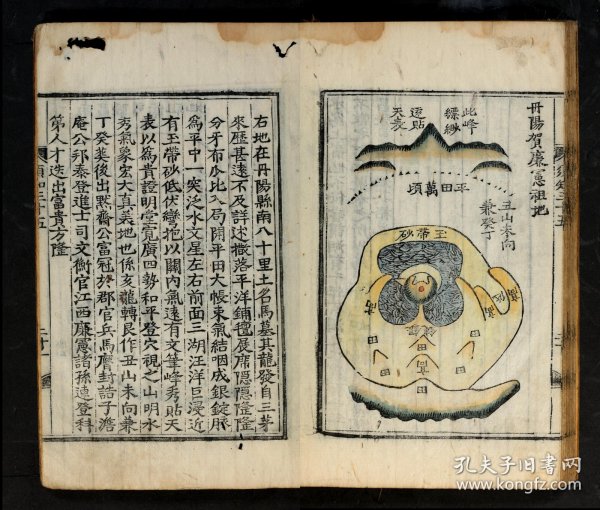 丹陽賀廉憲祖地
此峰
縹緲
遠貼
天表
平田萬頃
丑山未向
兼癸丁
玉帶砂
田
田
田
田
右地在丹陽縣南八十里土名馬墓其龍發自三茅
來歷甚遠不及詳述撒落平洋鋪氊展席隱隱隆隆
分牙布瓜比入局開平田大帳束氣結咽成銀錠脉
爲平中一突泛水文星左右前面三湖汪洋巨浸近
有玉帶砂低伏彎抱以關內氣遠有文筆峰秀貼天
表以爲貴證明堂寬廣四勢和平登穴視之山明水
秀氣象宏大真美地也係亥龍轉艮作丑山未向兼
丁癸葬後出黙齋公富冠於郡官兵馬膺封誥子澹
庵公邦泰登進士司文衡官江西廉憲諸孫連登科
第人才迭出富貴方隆
孔夫子旧书网
www.kongfz.com